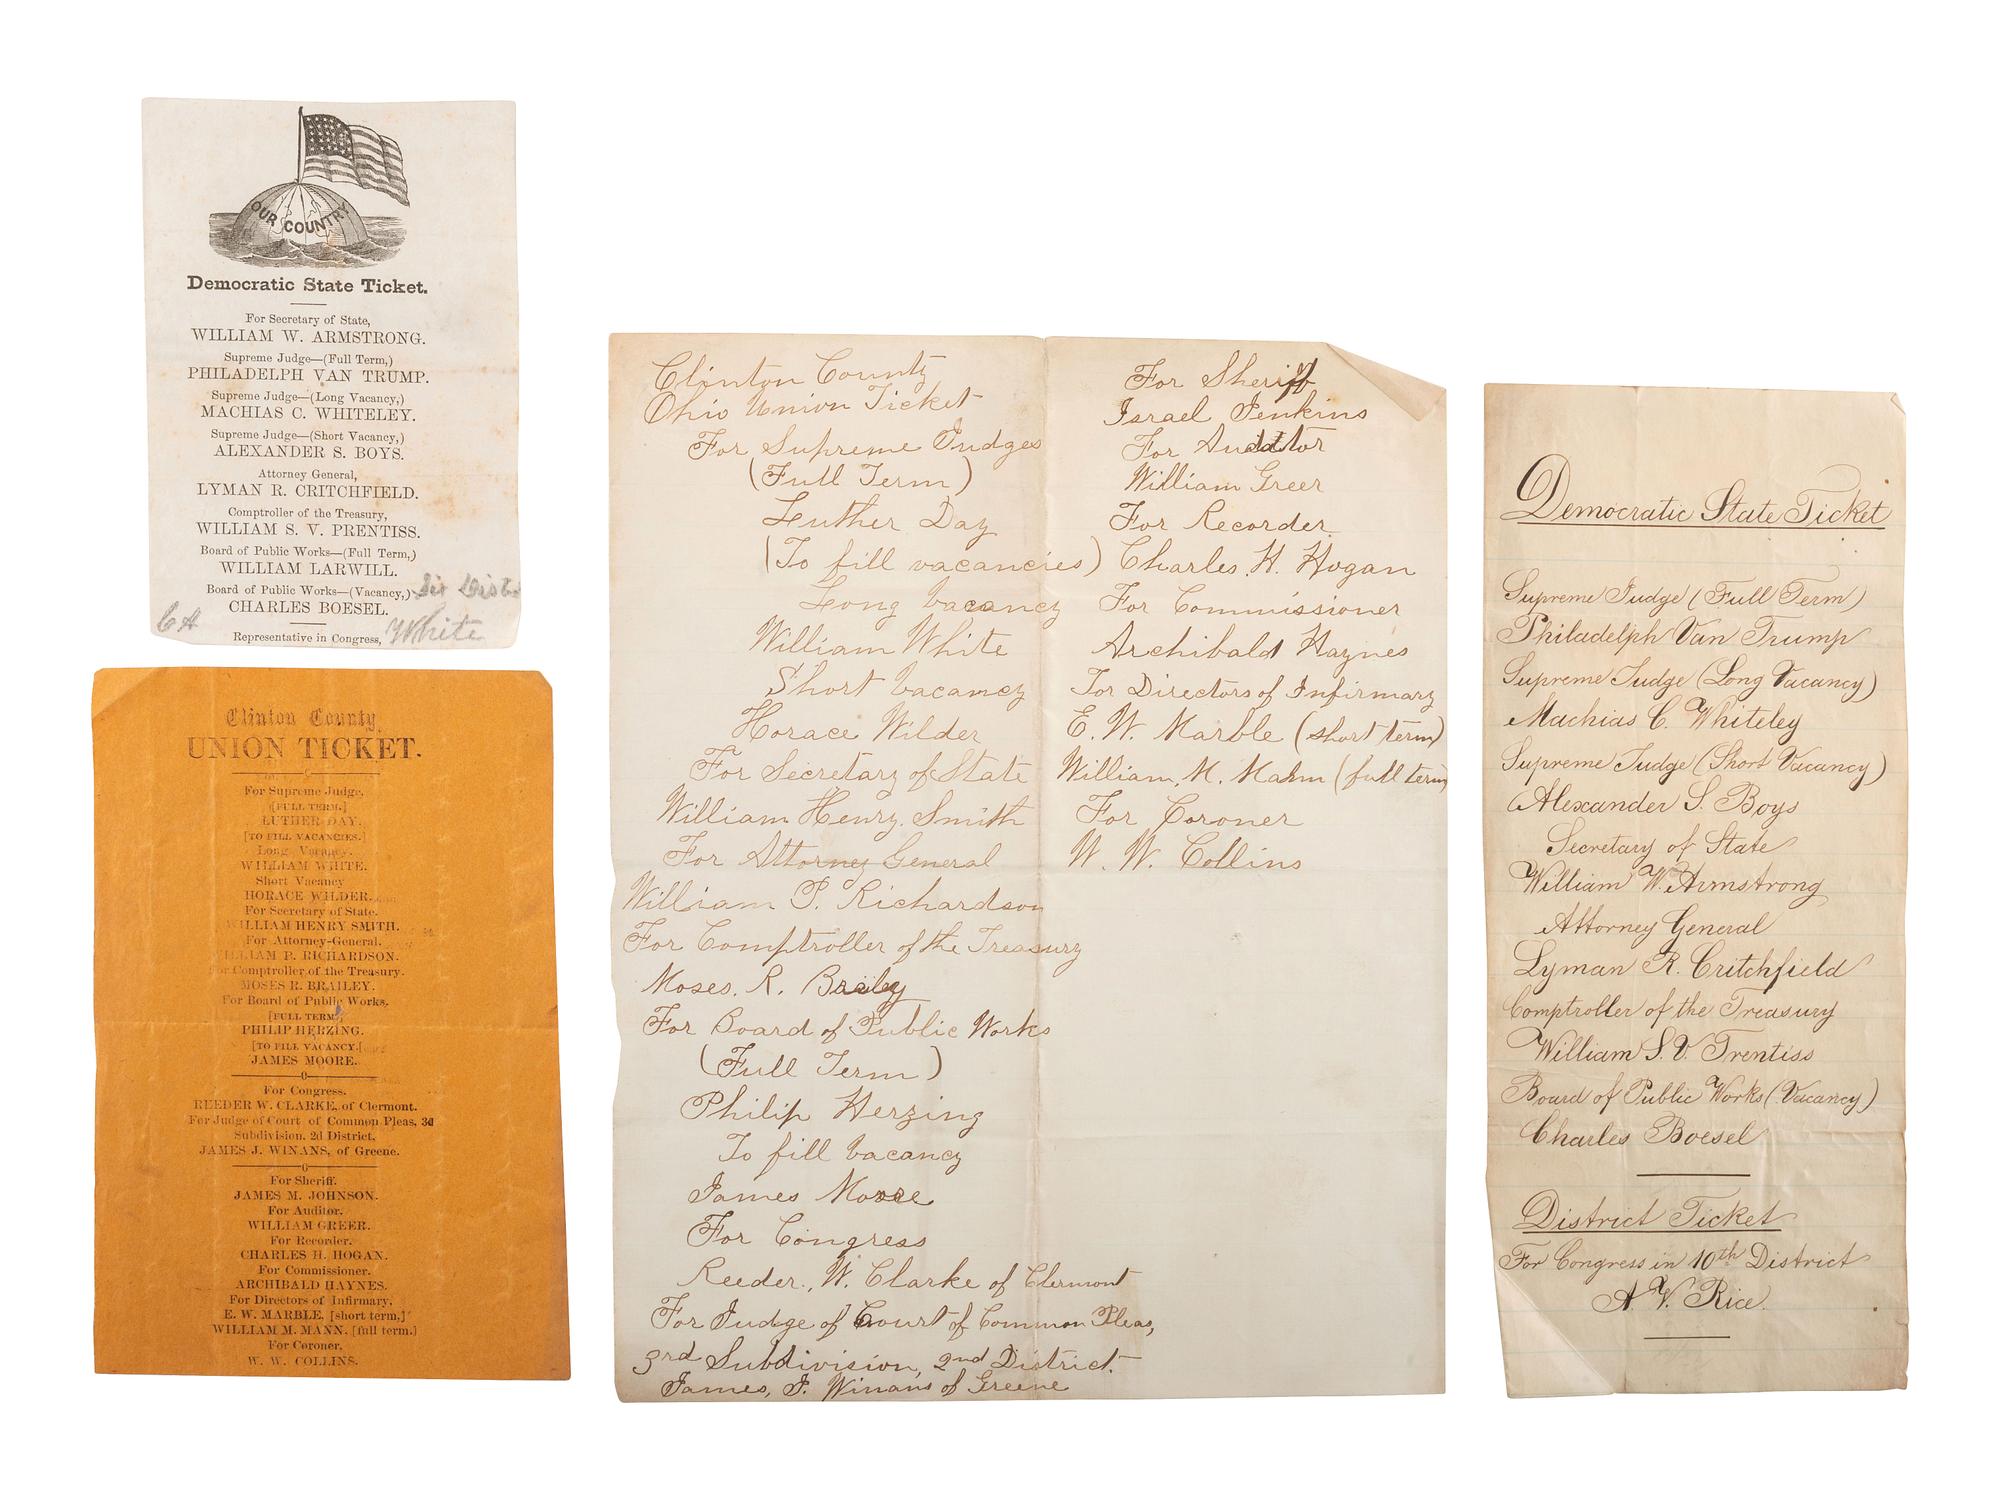 OUR COUNTRY
Democratic State Ticket.
For Secretary of State,
WILLIAM W. ARMSTRONG.
Supreme Judge—(Full Term,)
PHILADELPH VAN TRUMP.
Supreme Judge—(Long Vacancy,)
MACHIAS C. WHITELEY.
Supreme Judge—(Short Vacancy,)
ALEXANDER S. BOYS.
Attorney General,
LYMAN R. CRITCHFIELD.
Comptroller of the Treasury,
WILLIAM S. V. PRENTISS.
Board of Public Works—(Full Term,)
WILLIAM LARWILL.
Board of Public Works—(Vacancy,)
CHARLES BOESEL.
Representative in Congress, White
CA
Clinton County
UNION TICKET.
For Supreme Judge.
[FULL TERM.]
LUTHER DAY.
[TO FILL VACANCIES.]
Long Vacancy.
WILLIAM WHITE.
Short Vacancy
HORACE WILDER.
For Secretary of State.
WILLIAM HENRY SMITH.
For Attorney-General.
WILLIAM P. RICHARDSON.
For Comptroller of the Treasury.
MOSES R. BRAILEY.
For Board of Public Works.
[FULL TERM.]
PHILIP HERZING.
[TO FILL VACANCY.[
JAMES MOORE.
For Congress.
REEDER W. CLARKE, of Clermont.
For Judge of Court of Common Pleas, 3d
Subdivision, 2d District,
JAMES J. WINANS, of Greene.
For Sheriff.
JAMES M. JOHNSON.
For Auditor.
WILLIAM GREER.
For Recorder.
CHARLES H. HOGAN.
For Commissioner.
ARCHIBALD HAYNES.
For Directors of Infirmary,
E. W. MARBLE, [short term,]
WILLIAM M. MANN, [full term.]
For Coroner,
W. W. COLLINS.
Clinton County
Ohio Union Ticket
For Supreme Judges
(Full Term)
Luther Day
(To fill vacancies)
Long Vacancy
William White
Short Vacancy
Horace Wilder
For Secretary of State
William Henry Smith
For Attorney General
William P. Richardson
For Comptroller of the Treasury
Moses. R. Brailey
For Board of Public Works
(Full Term)
Philip Herzing
To fill Vacancy
James Moore
For Congress
Reeder, W. Clarke of Clermont
For Judge of Court of Common Pleas,
3rd Subdivision, 2nd District.
James, J. Winans of Greene
For Sheriff
Israel Jenkins
For Auditor
William Greer
For Recorder
Charles. H. Hogan
For Commissioner
Archibald Haynes
For Directors of Infirmary
E. W. Marble (short term)
William, M. Mahn (full term
For Coroner
W. W. Collins
Democratic State Ticket
Supreme Judge (Full Term)
Philadelph Van Trump
Supreme Judge (Long Vacancy)
Machias C. Whiteley
Supreme Judge (Short Vacancy)
Alexander S. Boys
Secretary of State
William W. Armstrong
Attorney General
Lyman R. Critchfield
Comptroller of the Treasury
William S. V. Trentiss
Board of Public Works (Vacancy)
Charles Boesel
District Ticket
For Congress in 10th District
A. V. Rice.